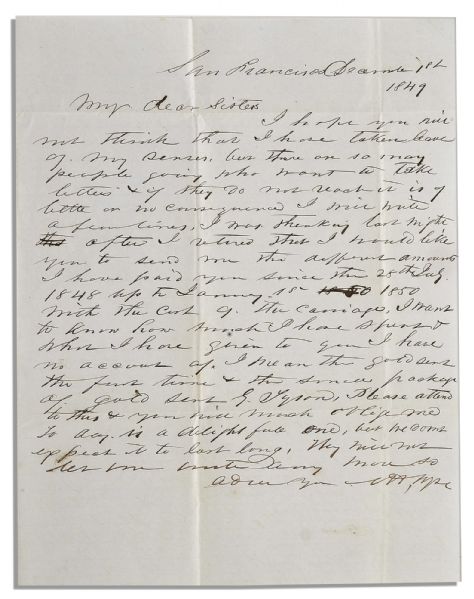 San Francisco December 1st
1849
My dear Sister
I hope you will
not think that I have taken leave
of my senses, but there are so many
people going who want to take
letters & if they do not reach it is of
little or no consequence I will write
a few lines. I was thinking last night
after I retired that I would like
you to send me the different amounts
I have paid you since the 28th July
1848 up to January 1st 1850
with the cost of the carriage. I want
to know how much I have spent &
what I have given to you I have
no account of. I mean the gold sent
the first time & the small package
of gold sent G. Tyson, Please attend
to this & you will much oblige me
To day is a delightfull one, but we cant
expect it to last long. They will not
let me write any more so
adieu